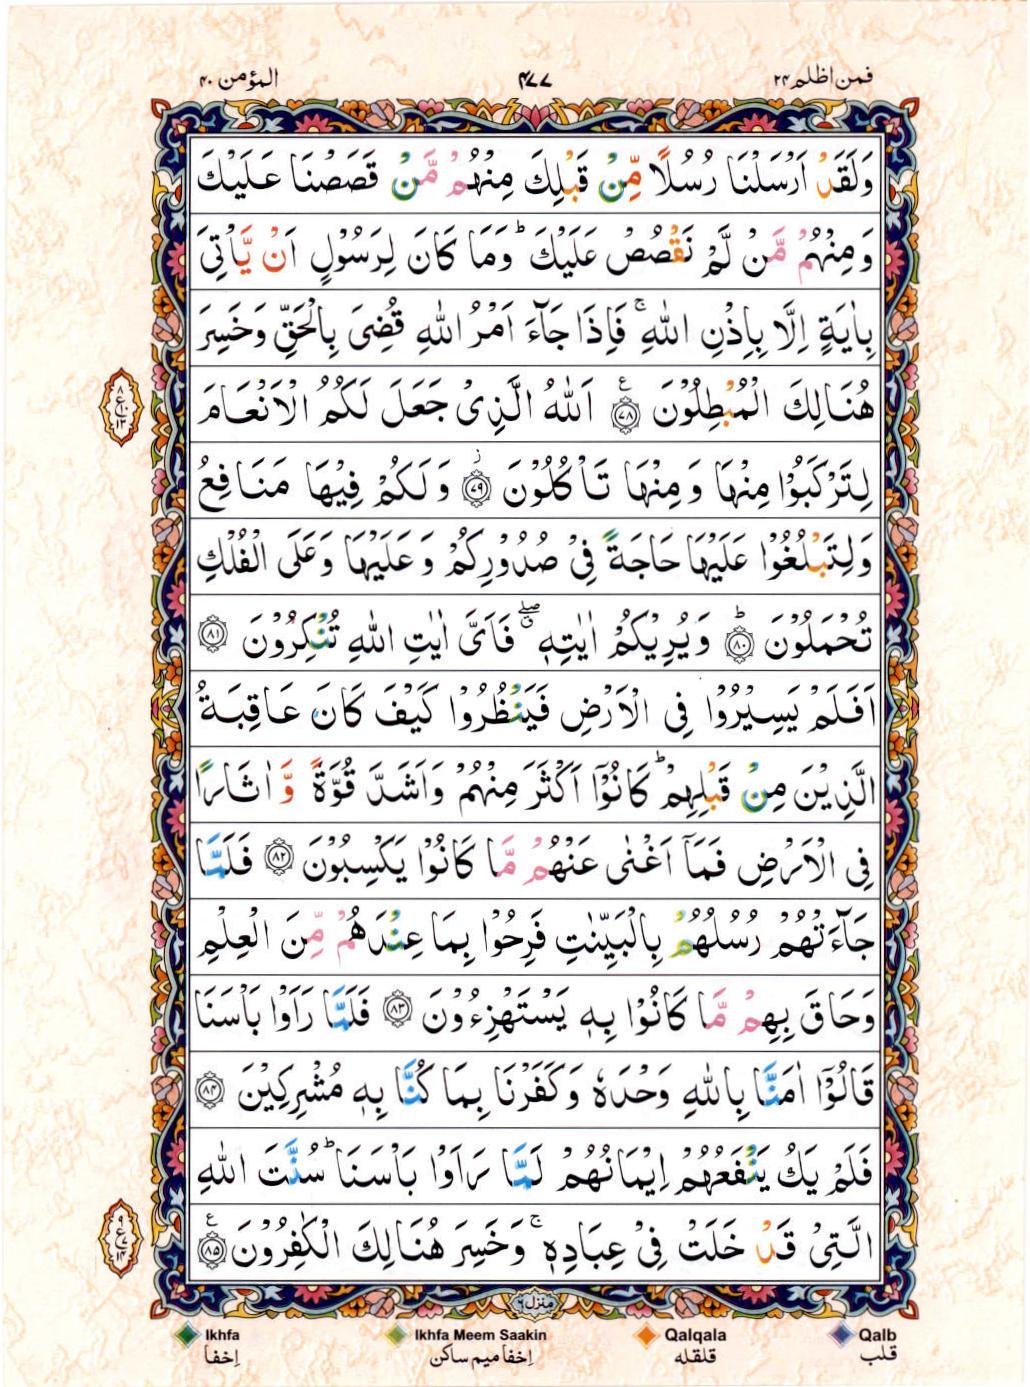 المؤمن ۴۰ ۴۷۷ فمن اظلم ۲۴
وَلَقَدْ اَرْسَلْنَا رُسُلًا مِّنْ قَبْلِكَ مِنْهُمْ مَّنْ قَصَصْنَا عَلَيْكَ
وَمِنْهُمْ مَّنْ لَّمْ نَقْصُصْ عَلَيْكَ ؕ وَمَا كَانَ لِرَسُوْلٍ اَنْ يَّاْتِیَ
بِاٰيَةٍ اِلَّا بِاِذْنِ اللّٰهِ ۚ فَاِذَا جَآءَ اَمْرُ اللّٰهِ قُضِیَ بِالْحَقِّ وَخَسِرَ
هُنَالِكَ الْمُبْطِلُوْنَ ۧ ﴿۷۸﴾ اَللّٰهُ الَّذِیْ جَعَلَ لَكُمُ الْاَنْعَامَ
لِتَرْكَبُوْا مِنْهَا وَمِنْهَا تَاْكُلُوْنَ ؗ ﴿۷۹﴾ وَلَكُمْ فِيْهَا مَنَافِعُ
وَلِتَبْلُغُوْا عَلَيْهَا حَاجَةً فِیْ صُدُوْرِكُمْ وَعَلَيْهَا وَعَلَی الْفُلْكِ
تُحْمَلُوْنَ ؕ ﴿۸۰﴾ وَيُرِيْكُمْ اٰيٰتِهٖ ۖۗ فَاَیَّ اٰيٰتِ اللّٰهِ تُنْكِرُوْنَ ﴿۸۱﴾
اَفَلَمْ يَسِيْرُوْا فِی الْاَرْضِ فَيَنْظُرُوْا كَيْفَ كَانَ عَاقِبَةُ
الَّذِيْنَ مِنْ قَبْلِهِمْ ؕ كَانُوْۤا اَكْثَرَ مِنْهُمْ وَاَشَدَّ قُوَّةً وَّاٰثَارًا
فِی الْاَرْضِ فَمَاۤ اَغْنٰی عَنْهُمْ مَّا كَانُوْا يَكْسِبُوْنَ ﴿۸۲﴾ فَلَمَّا
جَآءَتْهُمْ رُسُلُهُمْ بِالْبَيِّنٰتِ فَرِحُوْا بِمَا عِنْدَهُمْ مِّنَ الْعِلْمِ
وَحَاقَ بِهِمْ مَّا كَانُوْا بِهٖ يَسْتَهْزِءُوْنَ ﴿۸۳﴾ فَلَمَّا رَاَوْا بَاْسَنَا
قَالُوْۤا اٰمَنَّا بِاللّٰهِ وَحْدَهٗ وَكَفَرْنَا بِمَا كُنَّا بِهٖ مُشْرِكِيْنَ ﴿۸۴﴾
فَلَمْ يَكُ يَنْفَعُهُمْ اِيْمَانُهُمْ لَمَّا رَاَوْا بَاْسَنَا ؕ سُنَّتَ اللّٰهِ
الَّتِیْ قَدْ خَلَتْ فِیْ عِبَادِهٖ ۚ وَخَسِرَ هُنَالِكَ الْكٰفِرُوْنَ ۧ ﴿۸۵﴾
۸ ع ۱۰ ۱۳
۹ ع ۷ ۱۴
منزل ۶
Ikhfa Ikhfa Meem Saakin Qalqala Qalb
اِخفا اِخفا میم ساکن قلقله قلب